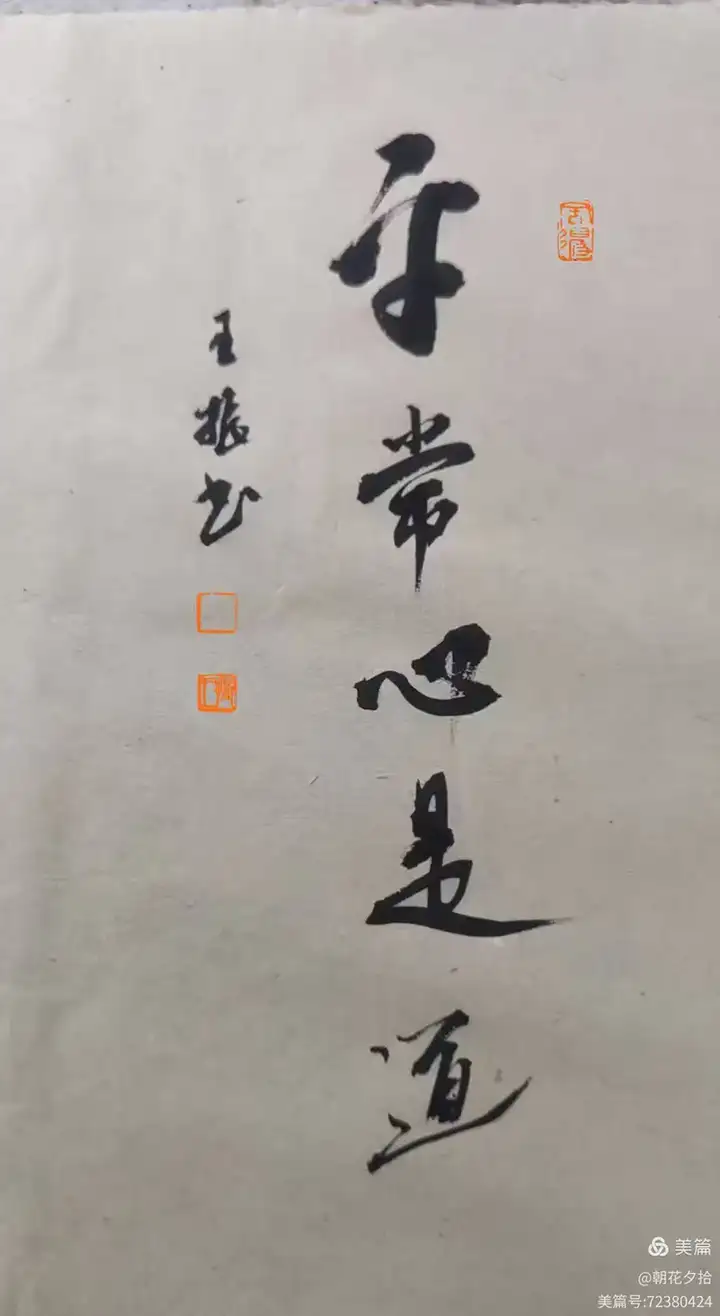 平常心是道
王振书
美篇
@朝花夕拾
美篇号:72380424